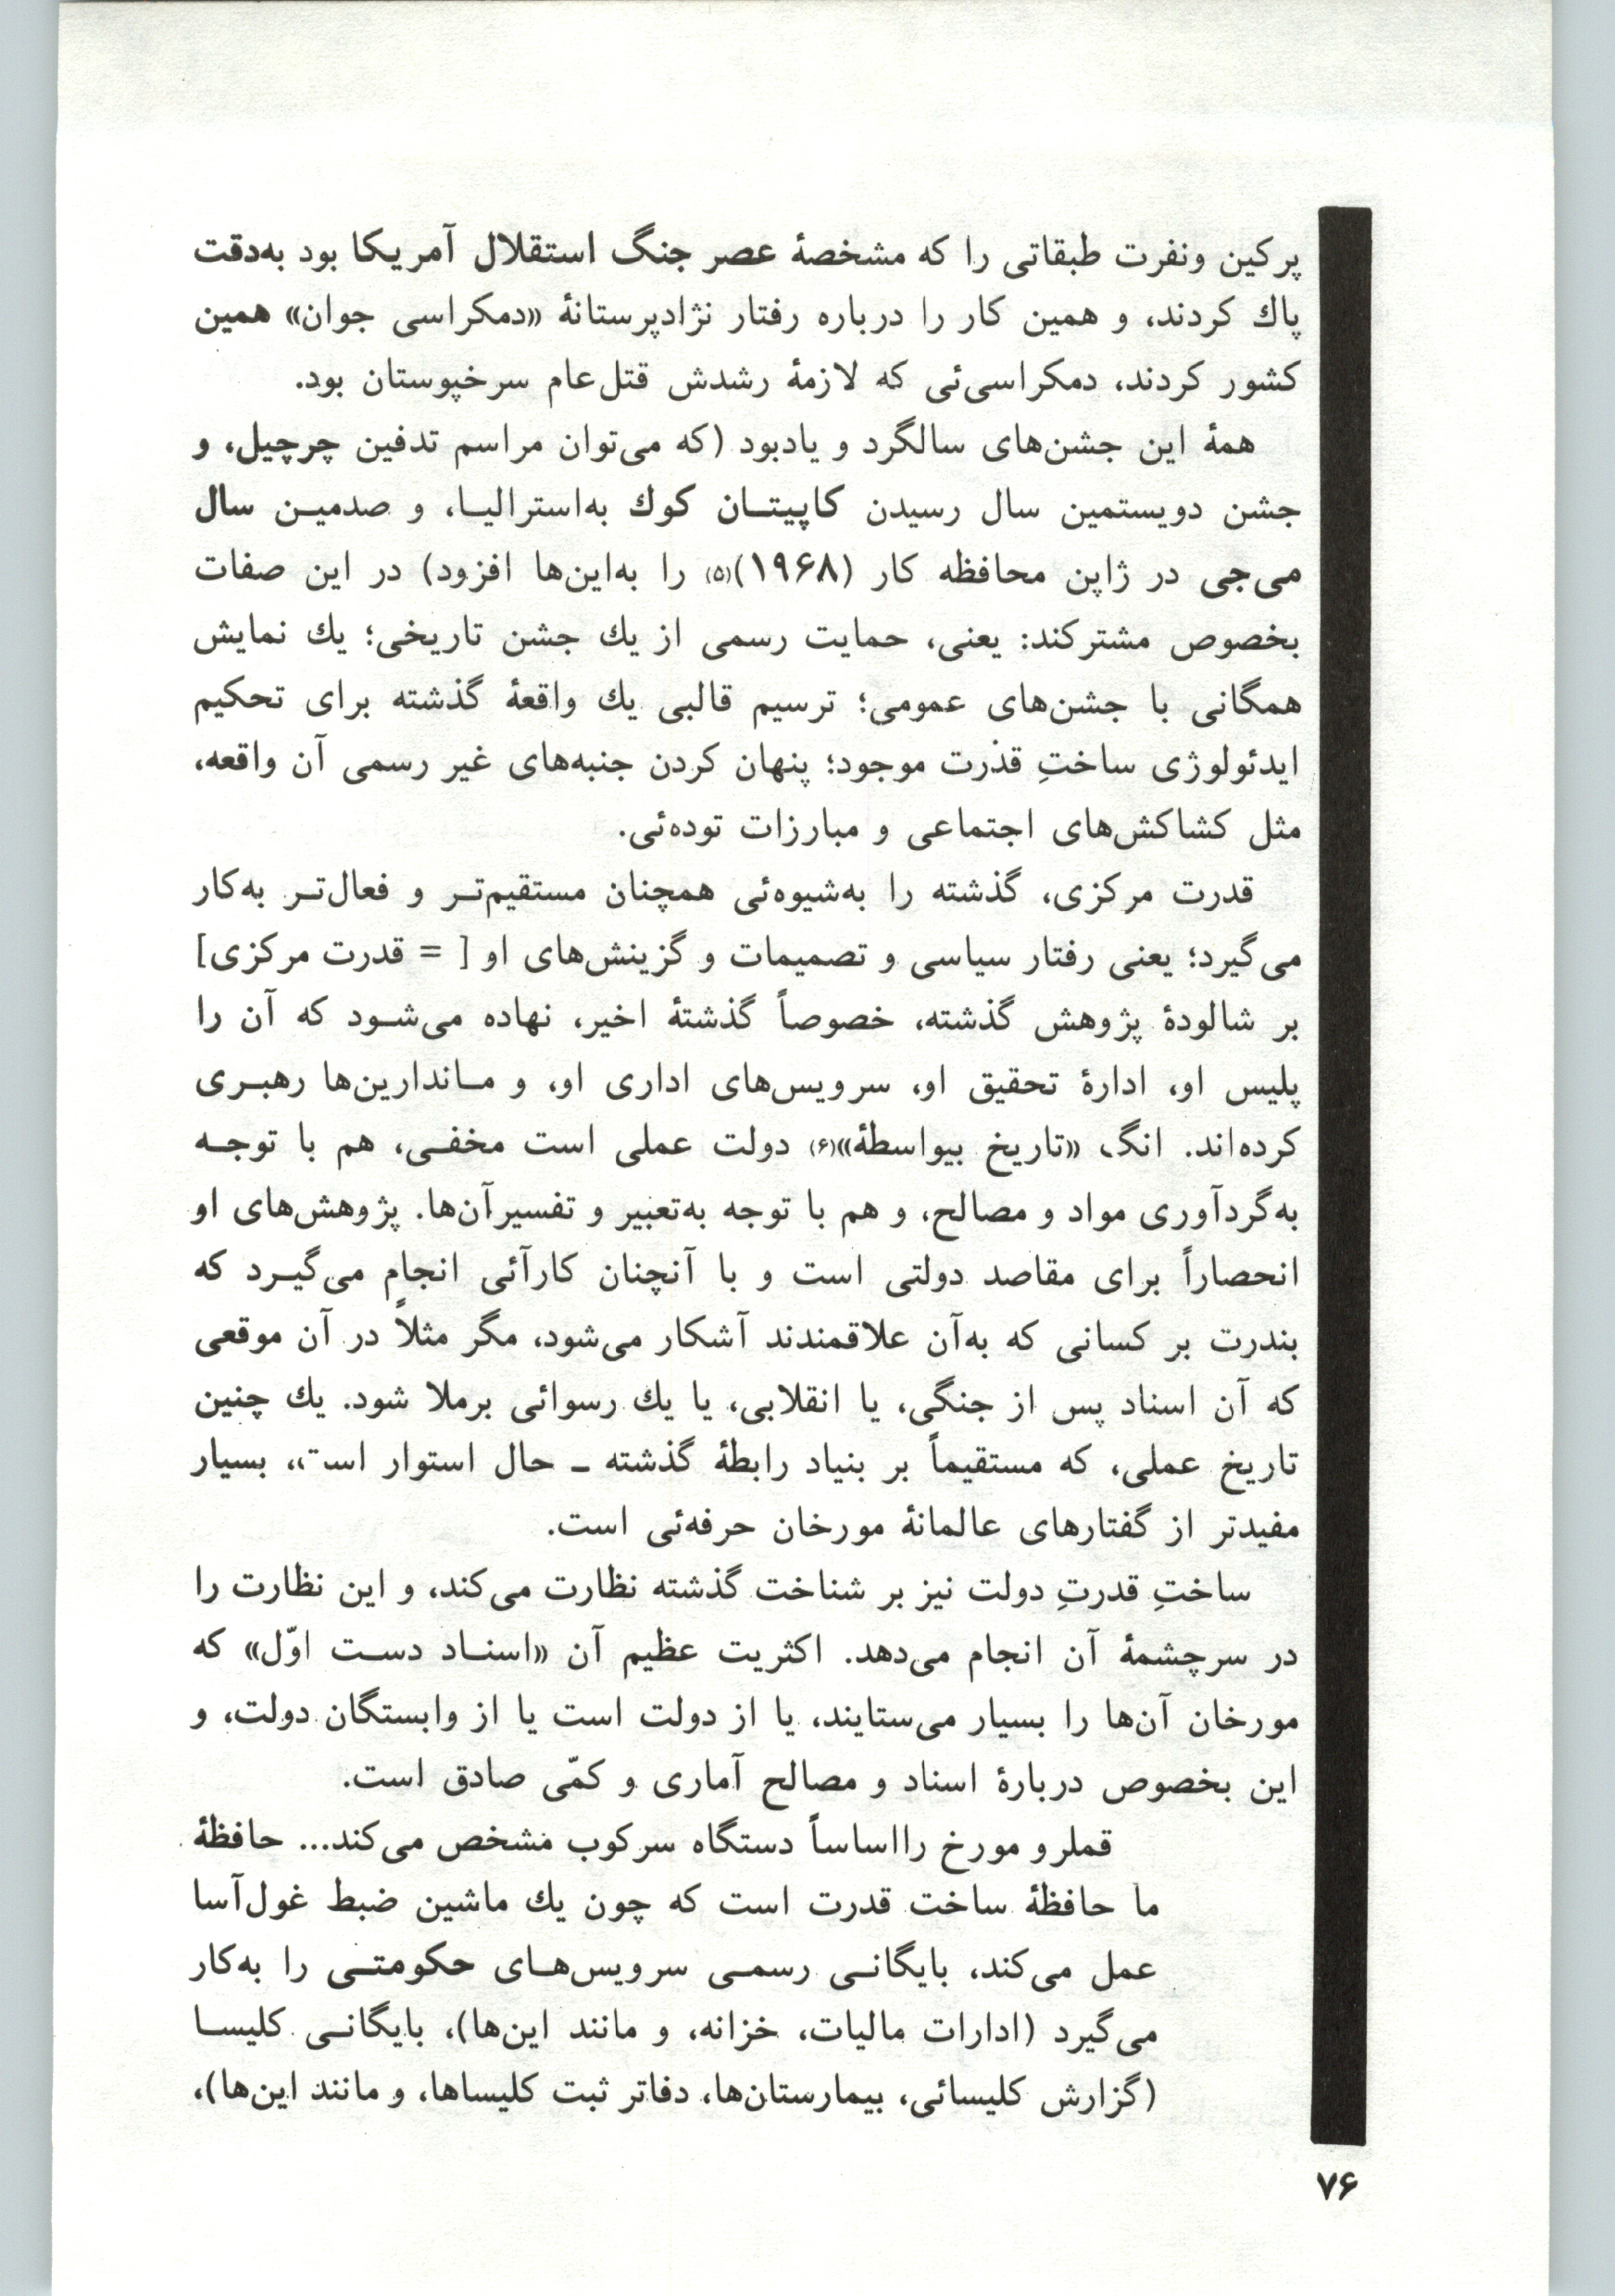 پرکین ونفرت طبقاتی را که مشخصهٔ عصر جنگ استقلال آمریکا بود به‌دقت
پاك کردند، و همین کار را درباره رفتار نژادپرستانهٔ «دمکراسی جوان» همین
کشور کردند، دمکراسی‌ئی که لازمهٔ رشدش قتل‌عام سرخپوستان بود.
همهٔ این جشن‌های سالگرد و یادبود (که می‌توان مراسم تدفین چرچیل، و
جشن دویستمین سال رسیدن کاپیتـان کوك به‌استرالیـا، و صدمیـن سال
می‌جی در ژاپن محافظه کار (۱۹۶۸)(۵) را به‌این‌ها افزود) در این صفات
بخصوص مشترکند: یعنی، حمایت رسمی از یك جشن تاریخی؛ یك نمایش
همگانی با جشن‌های عمومی؛ ترسیم قالبی یك واقعهٔ گذشته برای تحکیم
ایدئولوژی ساختِ قدرت موجود؛ پنهان کردن جنبه‌های غیر رسمی آن واقعه،
مثل کشاکش‌های اجتماعی و مبارزات توده‌ئی.
قدرت مرکزی، گذشته را به‌شیوه‌ئی همچنان مستقیم‌تـر و فعال‌تـر به‌کار
می‌گیرد؛ یعنی رفتار سیاسی و تصمیمات و گزینش‌های او [ = قدرت مرکزی]
بر شالودهٔ پژوهش گذشته، خصوصاً گذشتهٔ اخیر، نهاده می‌شـود که آن را
پلیس او، ادارهٔ تحقیق او، سرویس‌های اداری او، و مـاندارین‌ها رهبـری
کرده‌اند. انگ «تاریخ بیواسطهٔ»(۶) دولت عملی است مخفـی، هم با توجـه
به‌گردآوری مواد و مصالح، و هم با توجه به‌تعبیر و تفسیرآن‌ها. پژوهش‌های او
انحصاراً برای مقاصد دولتی است و با آنچنان کارآئی انجام می‌گیـرد که
بندرت بر کسانی که به‌آن علاقمندند آشکار می‌شود، مگر مثلاً در آن موقعی
که آن اسناد پس از جنگی، یا انقلابی، یا یك رسوائی برملا شود. یك چنین
تاریخ عملی، که مستقیماً بر بنیاد رابطهٔ گذشته ـ حال استوار است، بسیار
مفیدتر از گفتارهای عالمانهٔ مورخان حرفه‌ئی است.
ساختِ قدرتِ دولت نیز بر شناخت گذشته نظارت می‌کند، و این نظارت را
در سرچشمهٔ آن انجام می‌دهد. اکثریت عظیم آن «اسنـاد دسـت اوّل» که
مورخان آن‌ها را بسیار می‌ستایند، یا از دولت است یا از وابستگان دولت، و
این بخصوص دربارهٔ اسناد و مصالح آماری و کمّی صادق است.
قملرو مورخ رااساساً دستگاه سرکوب مشخص می‌کند... حافظهٔ
ما حافظهٔ ساخت قدرت است که چون یك ماشین ضبط غول‌آسا
عمل می‌کند، بایگانـی رسمـی سرویس‌هـای حکومتـی را به‌کار
می‌گیرد (ادارات مالیات، خزانه، و مانند این‌ها)، بایگانـی کلیسـا
(گزارش کلیسائی، بیمارستان‌ها، دفاتر ثبت کلیساها، و مانند این‌ها)،
۷۶